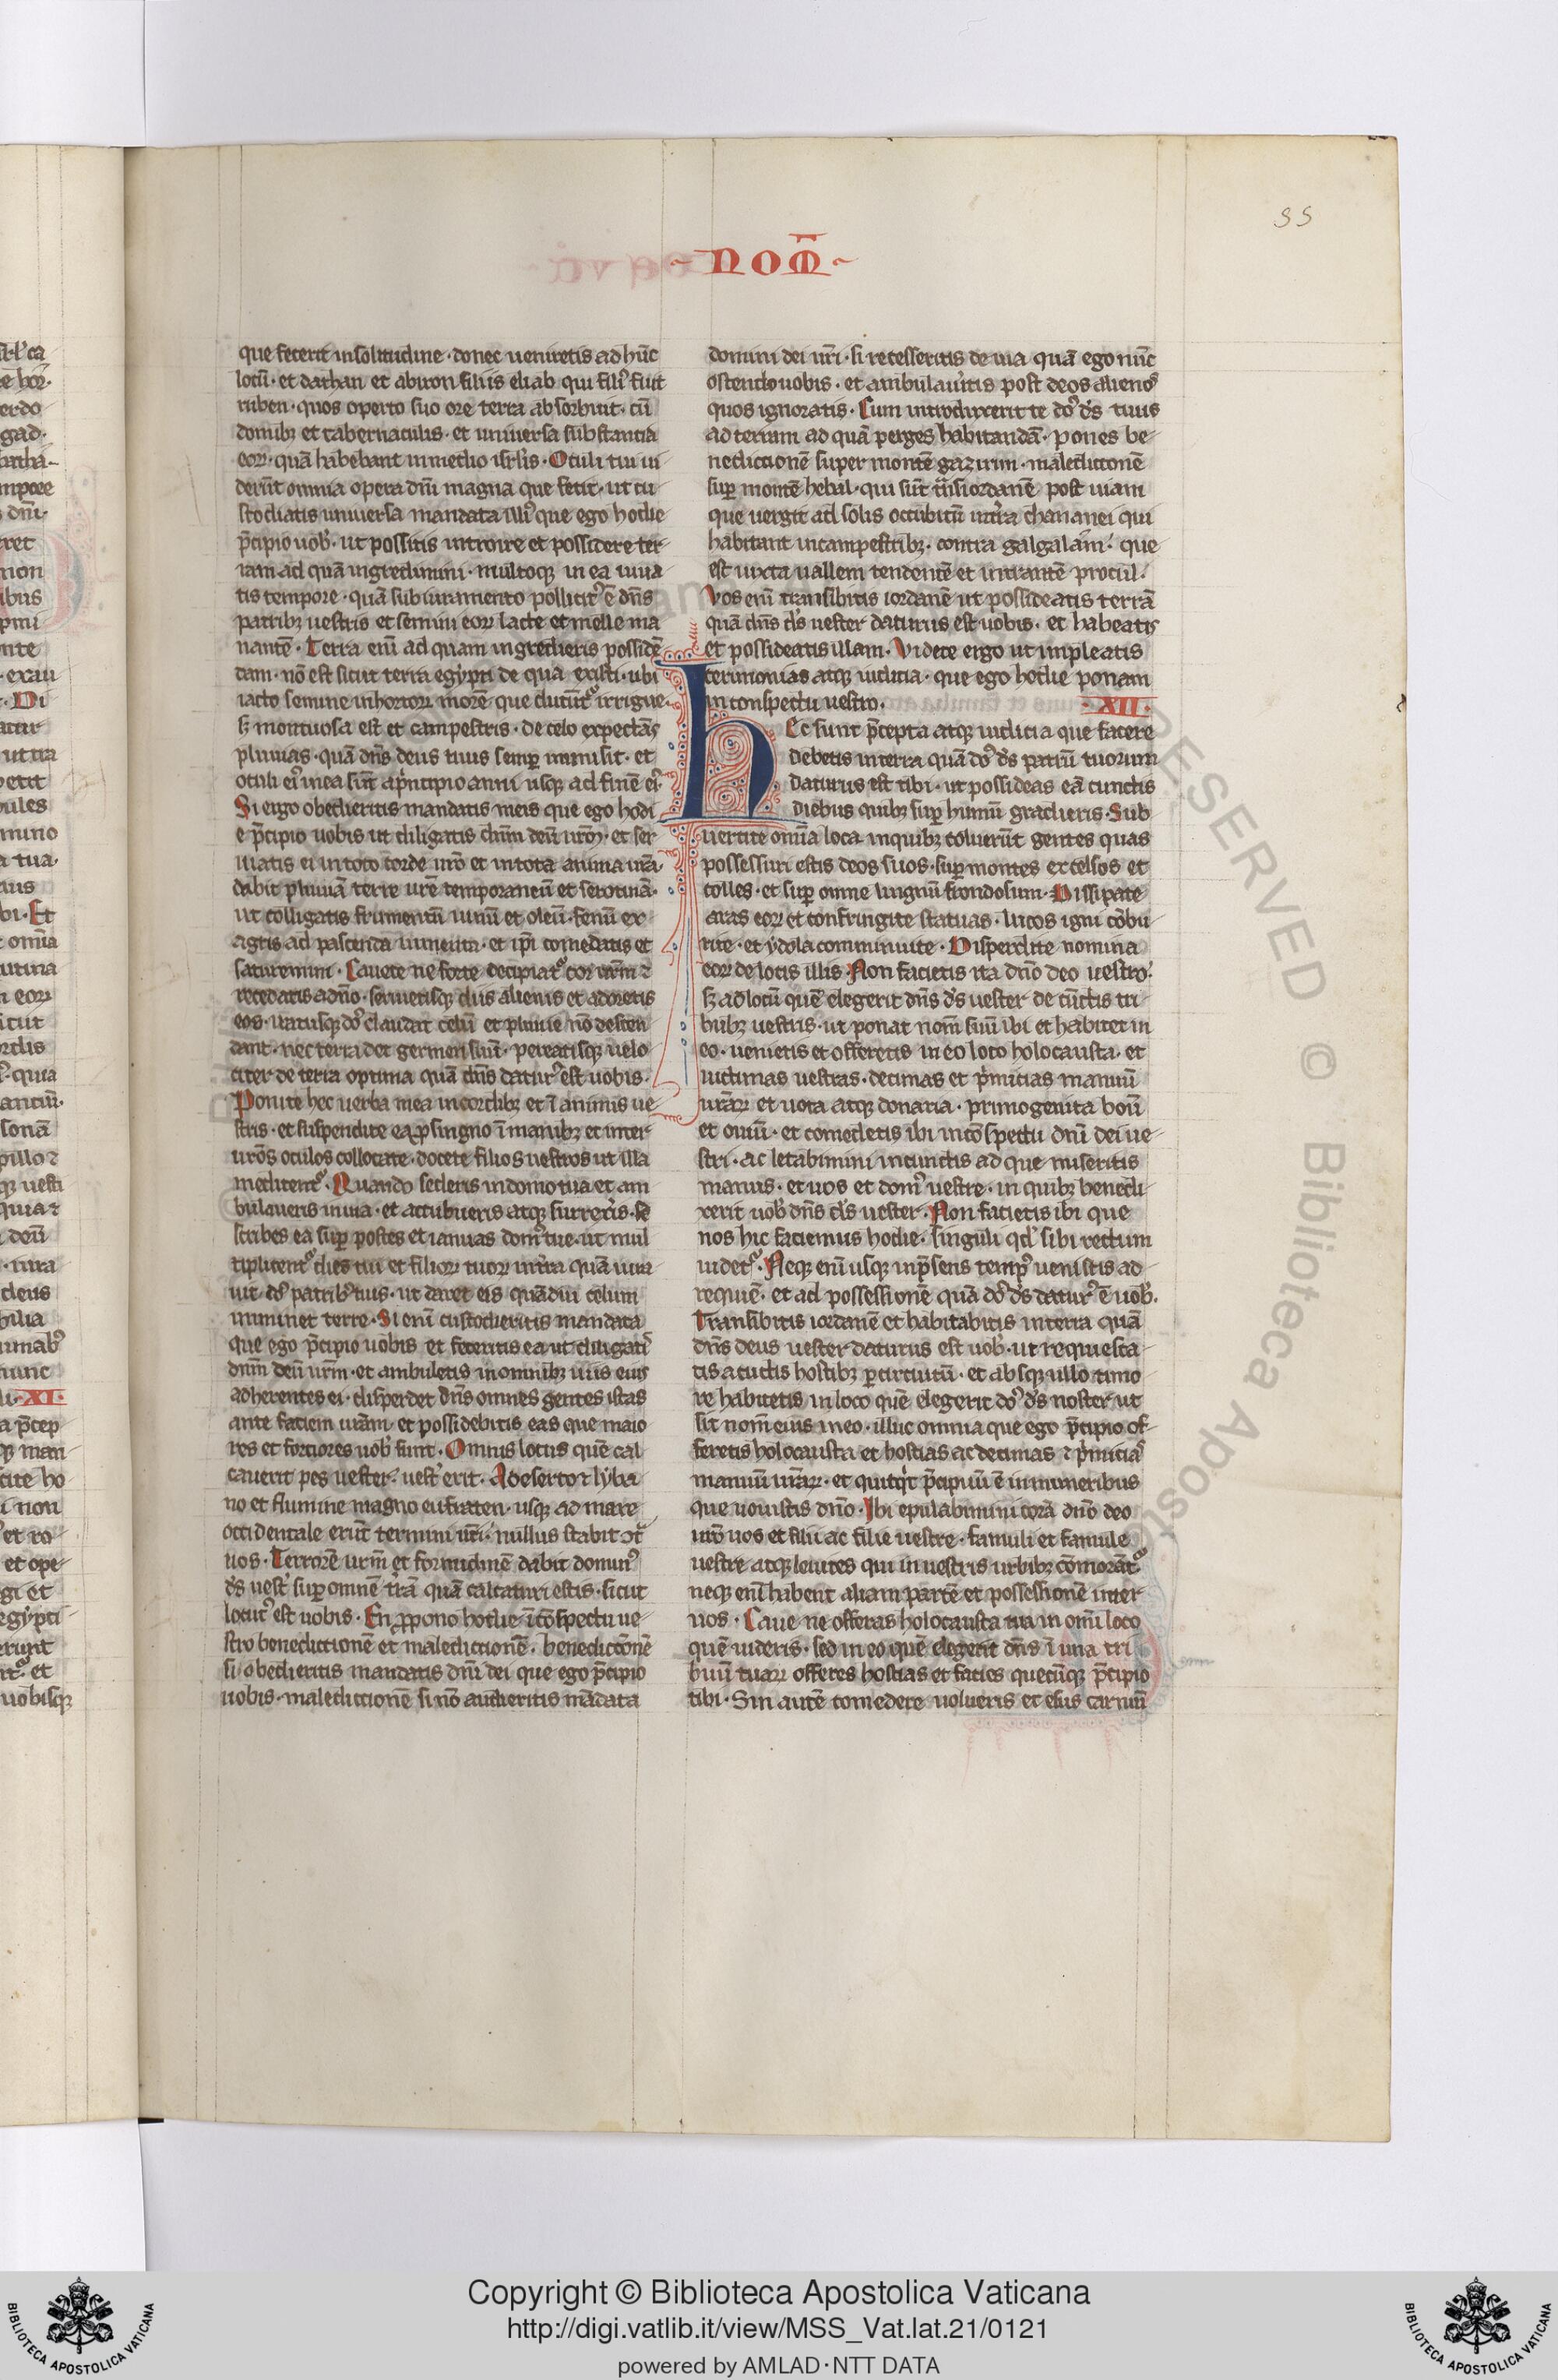 55
nom̄
que fecerit in solitudine · donec ueniretis ad hūc
locū · et dathan et abiron filiis eliab qui filiꝰ fuit
ruben · quos aperto suo ore terra absorbuit · cū
domibꝫ et tabernaculis · et uniuersa substantia
eoꝝ · quā habebant in medio isrl'is · Oculi tui ui
derūt omnia opera dn̄i magna que fecit · ut cu
stodiatis uniuersa mandata illiꝰ que ego hodie
p̄cipio uob · ut possitis introire et possidere ter
ram ad quā ingredimini · multoqꝫ in ea uiua
tis tempore · quā sub iuramento pollicitꝰ ē dn̄s
patribꝫ uestris et semini eoꝝ lacte et melle ma
nantē · Terra enī ad quam ingredieris possidē
dam · nō est sicut terra egypti de qua existi · ubi
iacto semine in hortoꝝ morē que ducūt᷑ irrigue ·
sꝫ montuosa est et campestris · de celo expectās
pluuias · quā dn̄s deus tuus semp inuisit · et
oculi eiꝰ in ea sūt a p̄ncipio anni usqꝫ ad finē eiꝰ
Si ergo obedieritis mandatis meis que ego hodi
e p̄cipio uobis ut diligatis dn̄m deū ur̄m · et ser
uiatis ei in toto corde ur̄o et in tota anima ur̄a ·
dabit pluuiā terre ur̄e temporaneū et serotinā ·
ut colligatis frumentū uinū et oleū · fenū ex
agris ad pascenda iumenta · et ip̄i comedatis et
saturemini · Cauete ne forte decipiat᷑ cor ur̄m ⁊
recedatis a dn̄o · seruietisqꝫ diis alienis et adoretis
eos · iratusqꝫ dōꝰ claudat celū et pluuie nō descen
dant · nec terra det germen suū · pereatisqꝫ uelo
citer de terra optima quā dn̄s daturꝰ est uobis ·
Ponite hec uerba mea in cordibꝫ et ī animis ue
stris · et suspendite ea p̱ singno ī manibꝫ et inter
ur̄os oculos collocate · docete filios uestros ut illa
meditent᷑ · Quando sederis in domo tua et am
bulaueris in uia · et accubueris atqꝫ surrexis · se
scribes ea sup postes et ianuas domꝰ tue · ut mul
tiplicent᷑ dies tui et filioꝝ tuoꝝ in tr̄ra quā iura
uit · dōꝰ patribꝰ tuis · ut daret eis quādiu celum
imminet terre · Si enī custodieritis mandata
que ego p̄cipio uobis et feceritis ea ut diligatiꝰ
dn̄m deū ur̄m · et ambuletis in omnibꝫ uiis eius
adherentes ei · disperdet dn̄s omnes gentes istas
ante faciem ur̄am · et possidebitis eas que maio
res et fortiores uob sunt · Omnis locus quē cal
cauerit pes uester · uest̄ erit · A deserto ⁊ lyba
no et flumine magno eufraten · usqꝫ ad mare
occidentale erūt termini ur̄i · nullus stabit ꝯt̄
uos · Terrorē ur̄m et formidinē dabit dominꝰ
d's uest̄ sup omnē tr̄ā quā calcaturi estis · sicut
locutꝰ est uobis · En p̱pono hodie ī cōspectu ue
stro benedictionē et maledictionē · benedictōnē
si obedieritis mandatis dn̄i dei que ego p̄cipio
uobis · maledictionē si nō audieritis mādata
domini dei ur̄i · si recesseritis de uia quā ego nūc
ostendo uobis · et ambulau̾itis post deos alienoꝰ
quos ignoratis · Cum introduxerit te dōꝰ d's tuus
ad terram ad quā perges habitandā · pones be
nedictionē super montē gazirim · maledictionē
sup montē hebal · qui sūt tn̄s iordanē post uiam
que uergit ad solis occubitū in tr̄ra chananei qui
habitant in campestribꝫ · contra galgalam · que
est iuxta uallem tendentē et intrantē procul ·
Vos enī transibitis iordanē ut possideatis terrā
quā dn̄s d's uester daturus est uobis · et habeatis
et possideatis illam · Videte ergo ut impleatis
cerimonias atqꝫ iudicia · que ego hodie ponam
in conspectu uestro · · XII ·
Hec sunt p̄cepta atqꝫ iudicia que facere
debetis in terra quā dōꝰ d's patrū tuorum
daturus est tibi · ut possideas eā cunctis
diebus quibꝫ sup humū gradieris · Sub
uertite om̄ia loca in quibꝫ coluerūt gentes quas
possessuri estis deos suos · sup montes excelsos et
colles · et sup omne lingnū frondosum · Dissipate
aras eoꝝ et confringite statuas · lucos igni cōbu
rite · et ydola comminuite · Disperdite nomina
eoꝝ de locis illis · Non facietis ita dn̄o deo uestro ·
sꝫ ad locū quē elegerit dn̄s d's uester de cūctis tri
bubꝫ uestris · ut ponat nom̄ suū ibi et habitet in
eo · uenietis et offeretis in eo loco holocausta · et
uictimas uestras · decimas et p̄micias manuū
ur̄aꝝ et uota atqꝫ donaria · primogenita boū
et ouiū · et comedetis ibi in cōspectu dn̄i dei ue
stri · ac letabimini in cunctis ad que miseritis
manus · et uos et domꝰ uestre · in quibꝫ benedi
xerit uob dn̄s d's uester · Non facietis ibi que
nos hic faciemus hodie · singuli qd' sibi rectum
uidet᷑ · Neqꝫ enī usqꝫ in p̄sens tempꝰ uenistis ad
requiē · et ad possessionē quā dōꝰ d's daturꝰ ē uob ·
Transibitis iordanē et habitabitis in terra quā
dn̄s deus uester daturus est uob · ut requiesca
tis a cūctis hostibꝫ p̱ circuitū · et absqꝫ ullo timo
re habitetis in loco quē elegerit dōꝰ d's noster ut
sit nom̄ eius in eo · illuc omnia que ego p̄cipio of
feretis holocausta et hostias ac decimas ⁊ p̄miciaꝰ
manuū ur̄aꝝ · et quitqꝰd p̄cipuū ē in muneribus
que uouistis dn̄o · Ibi epulabimini corā dn̄o deo
ur̄o uos et filii ac filie uestre · famuli et famule
uestre atqꝫ leuites qui in uestris urbibꝫ cōmorāt᷑
neqꝫ enī habent aliam partē et possessionē inter
uos · Caue ne offeras holocausta tua in om̄i loco
quē uideris · sed in eo quē elegerit dn̄s ī una tri
buū tuaꝝ offeres hostias et facies quecūqꝫ p̄cipio
tibi · Sin autē comedere uolueris et esus carniū
Copyright © Biblioteca Apostolica Vaticana
http://digi.vatlib.it/view/MSS_Vat.lat.21/0121
powered by AMLAD·NTT DATA
BIBLIOTECA APOSTOLICA VATICANA
BIBLIOTECA APOSTOLICA VATICANA